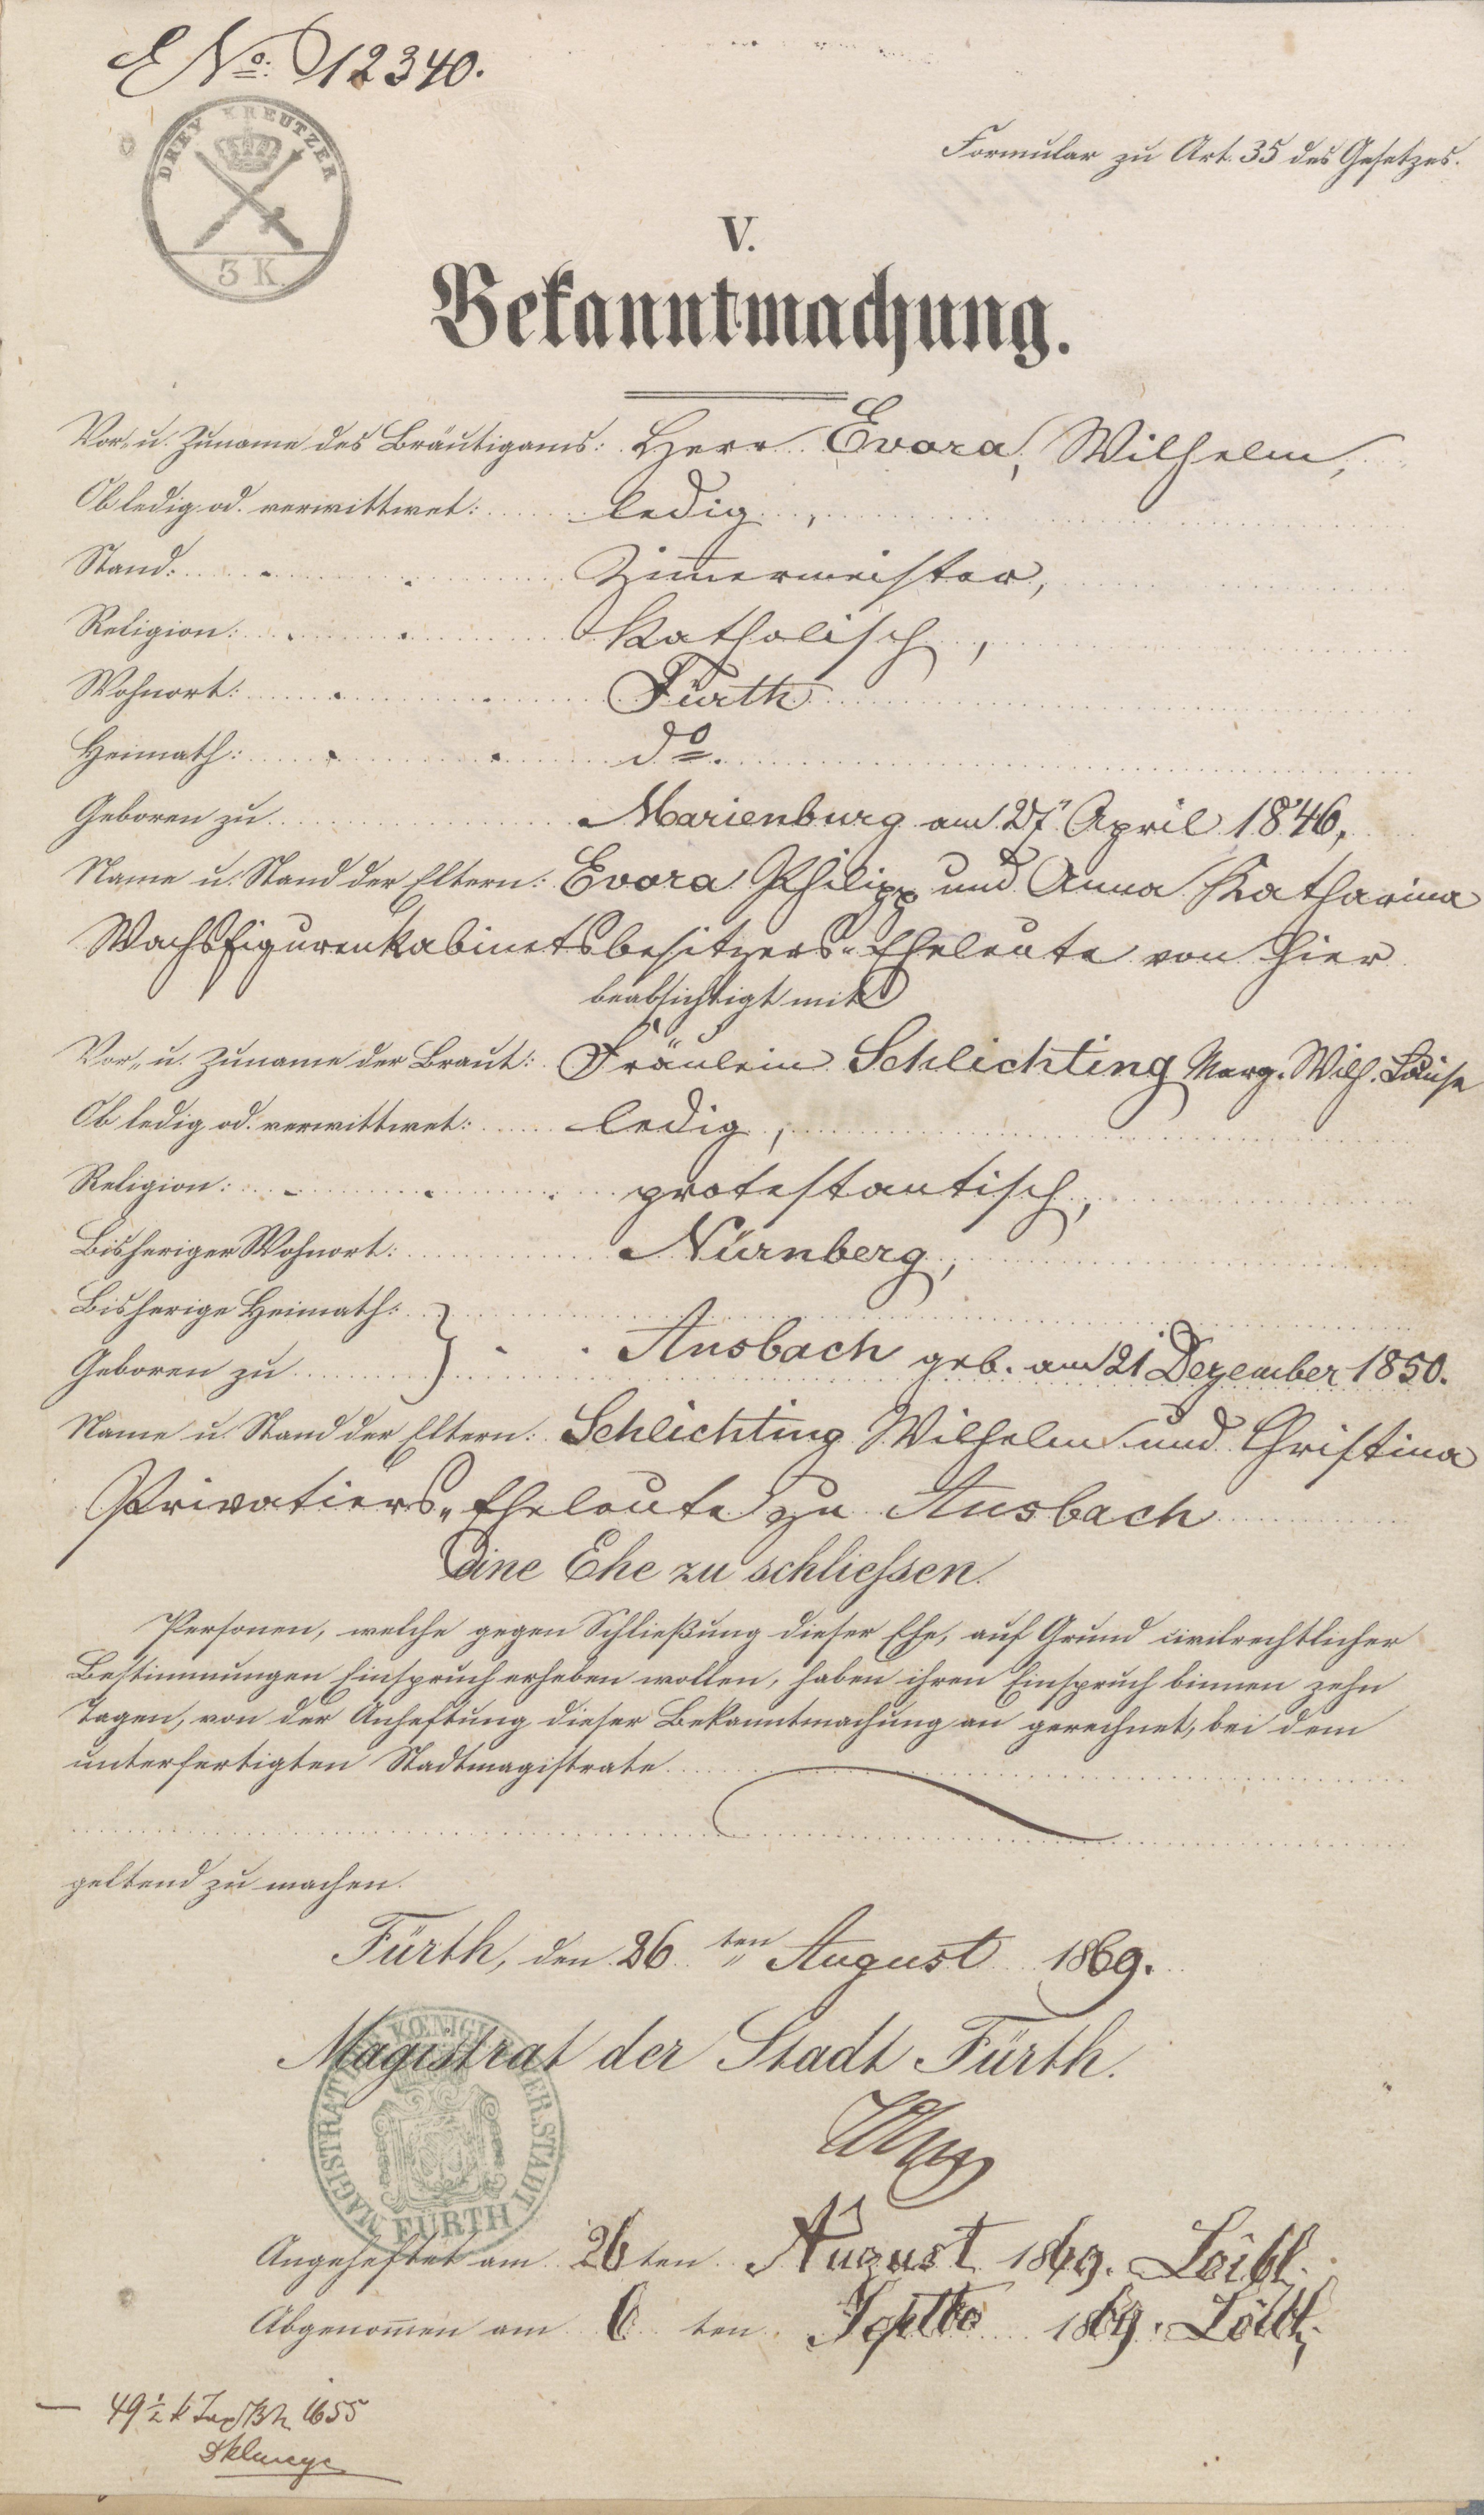 E No. 12340.
DREY KREUTZER
3 K
Formular zu Art. 35 des Gesetzes.
V.
Bekanntmachung.
Vor- u. Zuname des Bräutigams: Herr Evora, Wilhelm,
Ob ledig od. verwittwet: ledig,
Stand: Zim̅ermeister,
Religion: Katholisch,
Wohnort: Fürth
Heimath: do.
Geboren zu Marienburg am 27" April 1846,
Name u. Stand der Eltern: Evora Philipp und Anna Katharina
Wachsfigurenkabinetsbesitzers-Eheleute von hier
beabsichtigt mit
Vor- u. Zuname der Braut: Fräulein Schlichting Marg. Wilh. Louise
Ob ledig od. verwittwet: ledig,
Religion: protestantisch,
Bisheriger Wohnort: Nürnberg,
Bisherige Heimath:
Geboren zu } Ansbach geb. am 21 Dezember 1850.
Name u. Stand der Eltern: Schlichting Wilhelm und Christina
Privatiers-Eheleute zu Ansbach
eine Ehe zu schliessen.
Personen, welche gegen Schließung dieser Ehe, auf Grund civilrechtlicher
Bestimmungen Einspruch erheben wollen, haben ihren Einspruch binnen zehn
Tagen, von der Anheftung dieser Bekanntmachung an gerechnet, bei dem
unterfertigten Stadtmagistrate
geltend zu machen.
Fürth, den 26 ten August 1869.
Magistrat der Stadt Fürth.
MAGISTRAT DER KŒNIGL. BAYER. STADT FÜRTH
Angeheftet am 26 ten August 1869. Loibl.
Abgenom̅en am 6 ten Septbr 1869. Loibl.
49½ k 1655